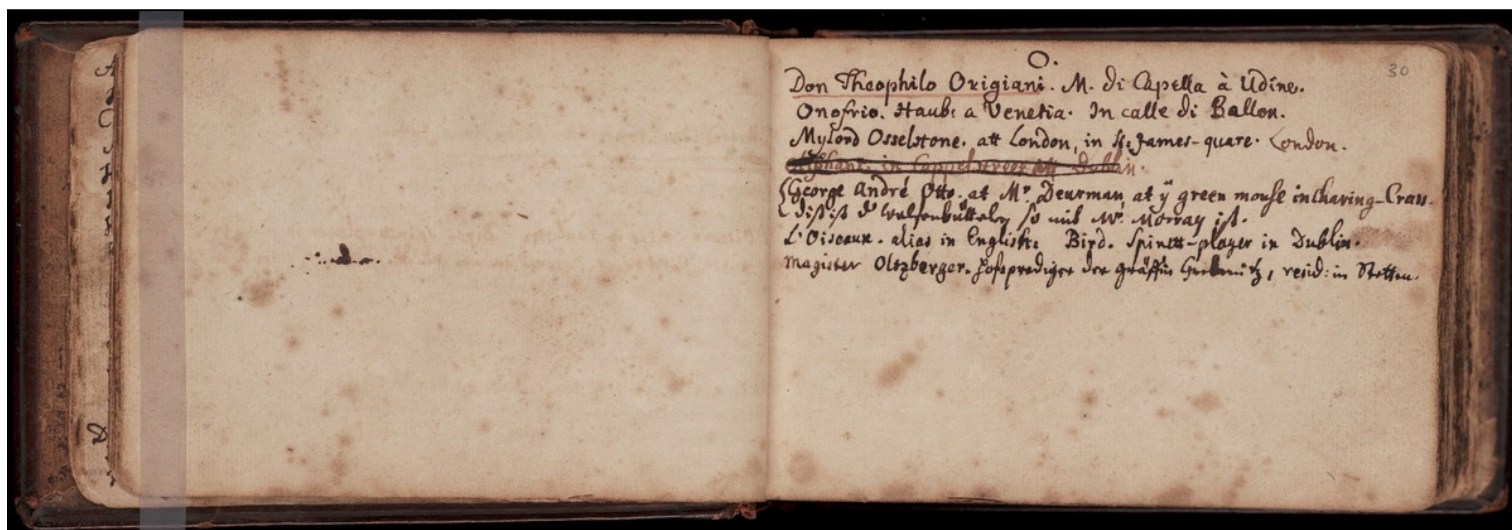 O.
30
Don Theophilo Origiani. M. di Capella à Udine.
Onofrio. Haub: a Venetia. In calle di Ballon.
Mylord Osselstone. att London, in St. James-quare. London.
in Cappelstreet att Dublin.
George André Otto. at Mr. Deurman, at ÿ green mouse in Charing-Crass.
dißist dr Wulfenbütteler so mit Mr. Morray ist.
L'Oiseaux. alias in English: Bird. Spinett-player in Dublin.
Magister Oltzberger. hofsprediger der gräffin, resid: in Stetten.